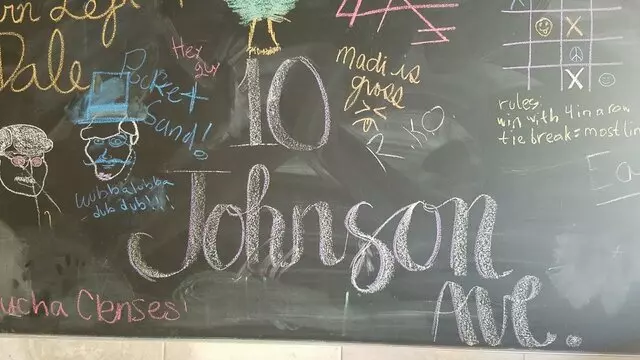 rn Left
Dale
Hey
guy
Pocket
Sand!
wubbalubba
dub dub!!!!
10
Johnson
Ave.
madi is
gross
R.KO
X
X
rules:
win with 4 in a row
tie break = most lin
ucha Clenses!